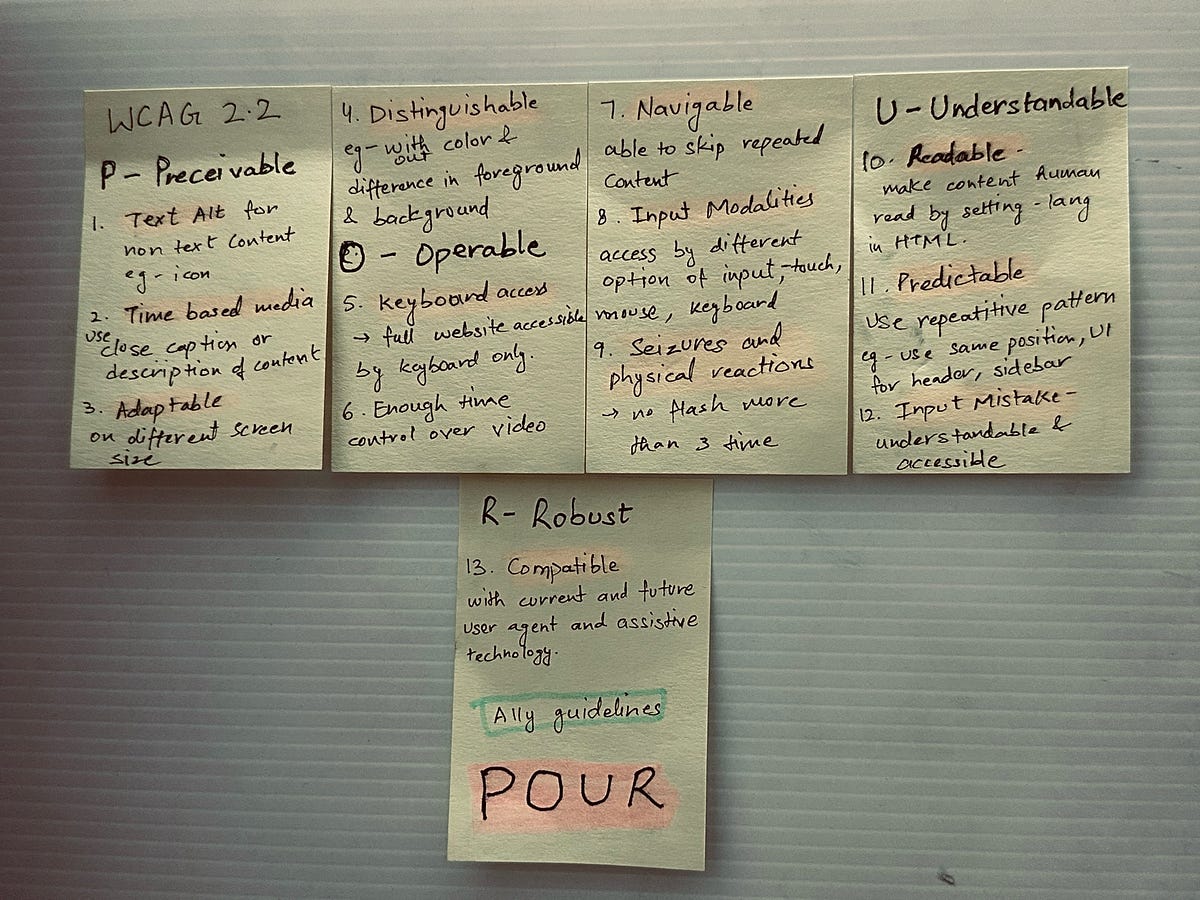 WCAG 2.2
P - Preceivable
1. Text Alt for
non text content
eg - icon
2. Time based media
use close caption or
description of content
3. Adaptable
on different screen
size
4. Distinguishable
eg - without color &
difference in foreground
& background
O - Operable
5. Keyboard access
→ full website accessible
by keyboard only.
6. Enough time
control over video
7. Navigable
able to skip repeated
content
8. Input Modalities
access by different
option of input, -touch,
mouse, keyboard
9. Seizures and
physical reactions
→ no flash more
than 3 time
U - Understandable
10. Readable -
make content human
read by setting - lang
in HTML.
11. Predictable
Use repeatitive pattern
eg - use same position, UI
for header, sidebar
12. Input Mistake -
understandable &
accessible
R - Robust
13. Compatible
with current and future
user agent and assistive
technology.
A11y guidelines
POUR